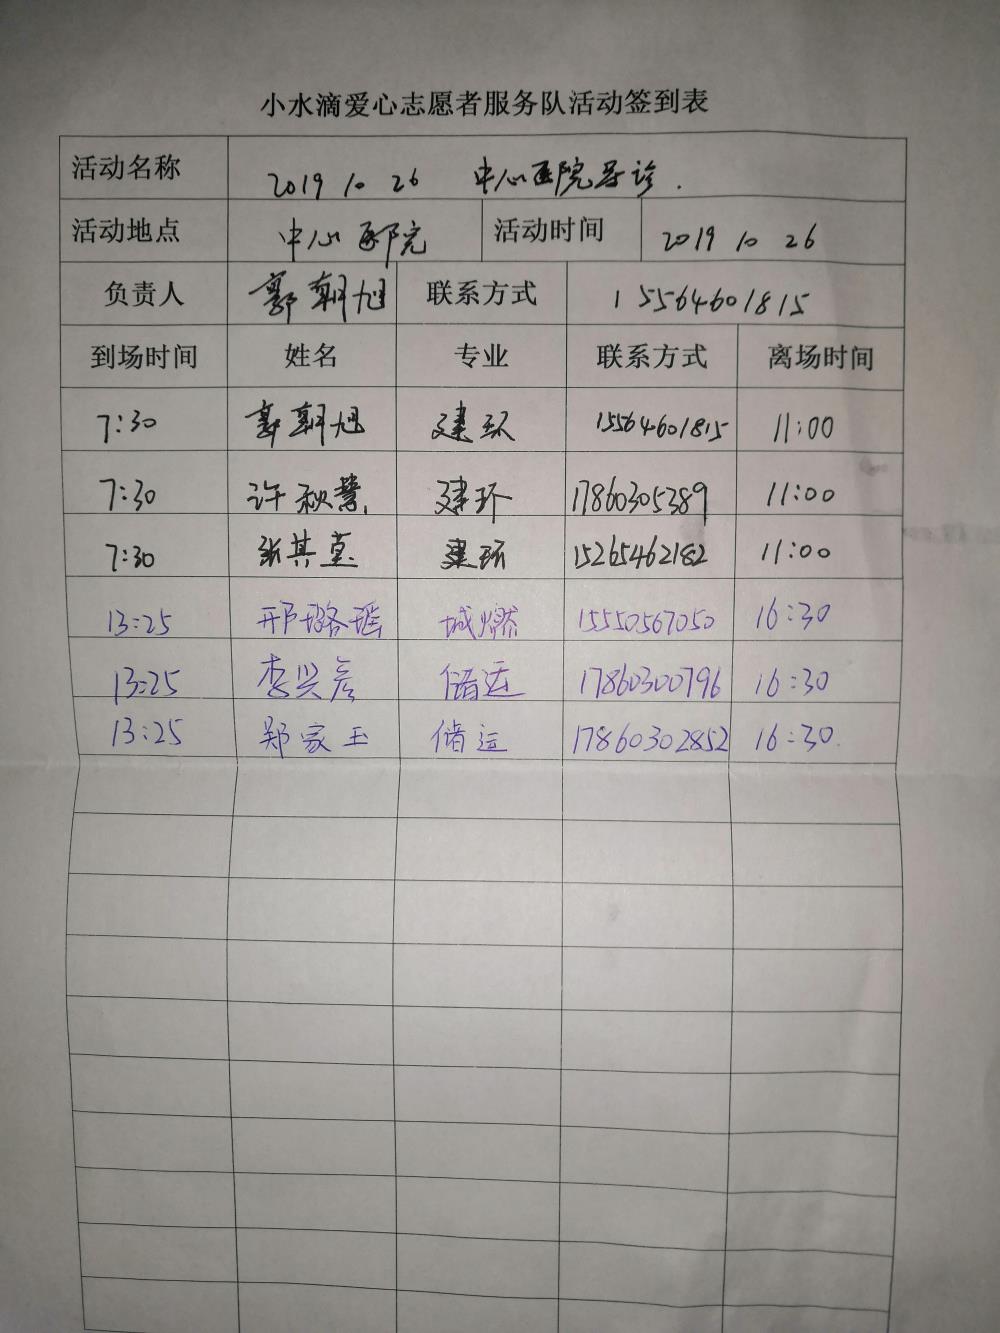 小水滴爱心志愿者服务队活动签到表
活动名称 2019 10 26 中心医院导诊.
活动地点 中心医院 活动时间 2019 10 26
负责人 郭朝旭 联系方式 15564601815
到场时间 姓名 专业 联系方式 离场时间
7:30 郭朝旭 建环 15564601815 11:00
7:30 许秋慧 建环 17860305389 11:00
7:30 张其 建环 15265462182 11:00
13:25 邢璐瑶 城燃 15550567050 16:30
13:25 李兴彦 储运 17860300796 16:30
13:25 郑家玉 储运 17860302852 16:30.